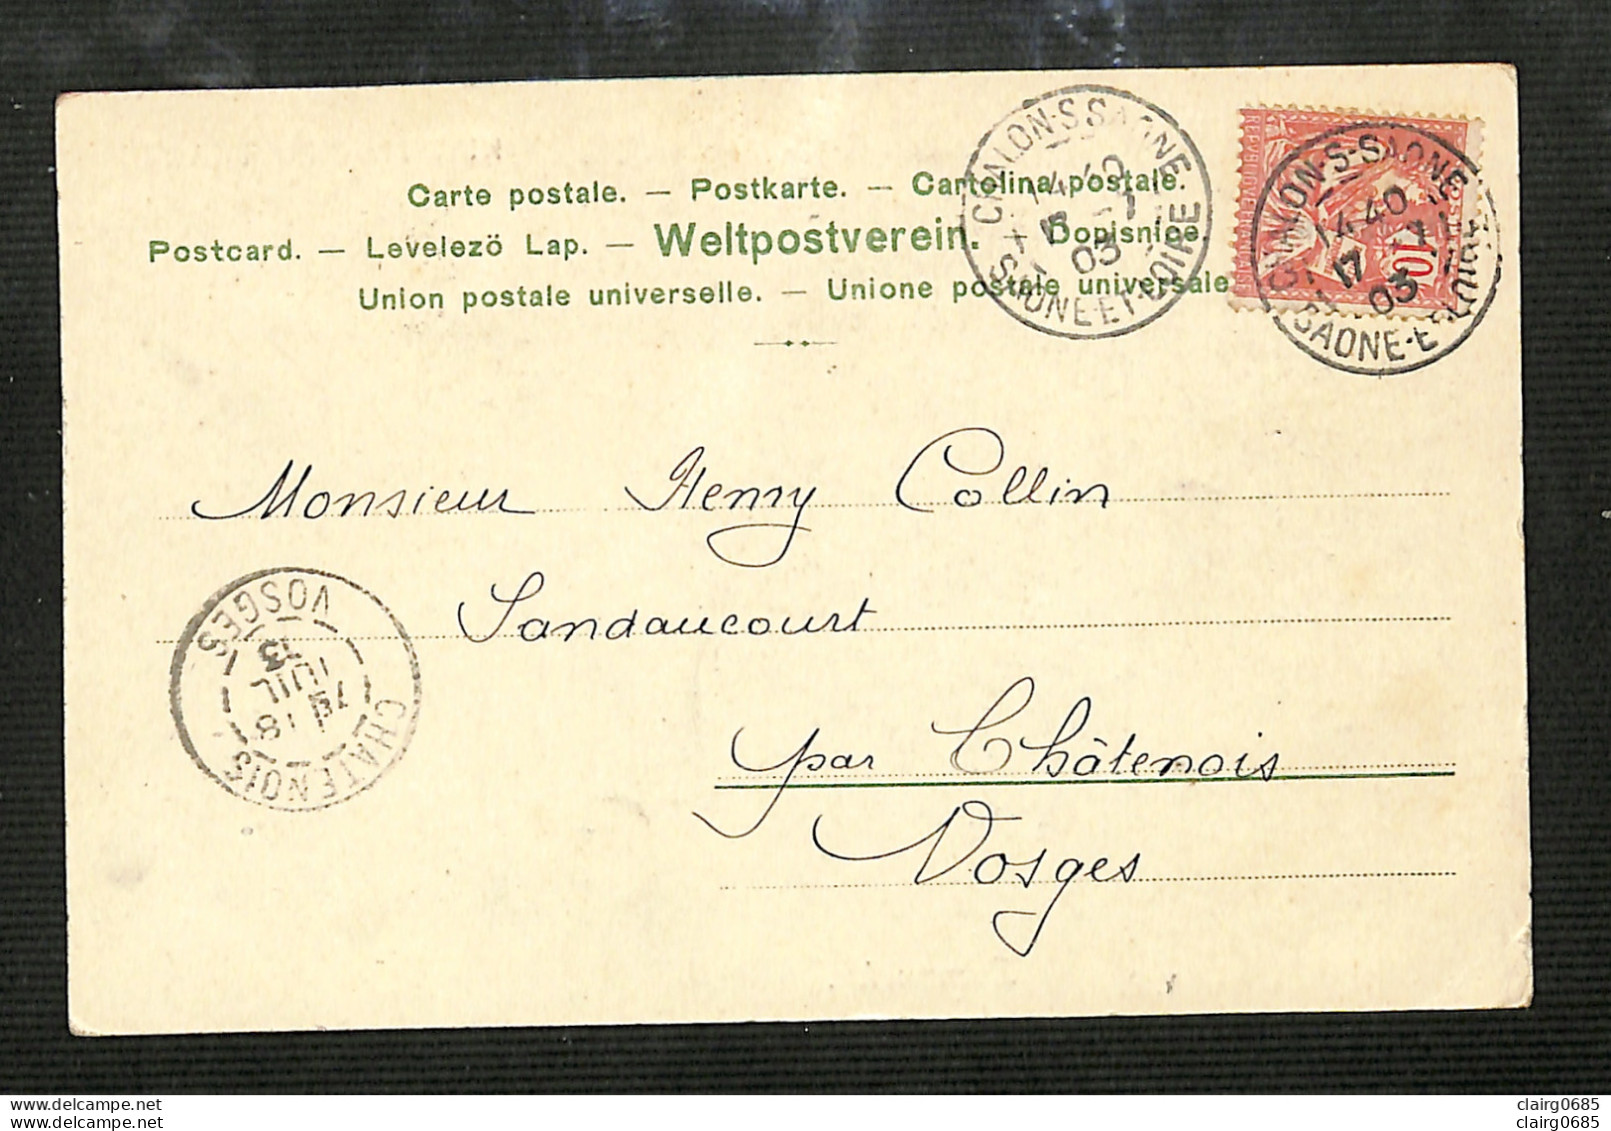 Carte postale. — Postkarte. — Cartolina postale.
Postcard. — Levelezö Lap. — Weltpostverein. — Dopisnice.
Union postale universelle. — Unione postale universale
CHALON-S-SAONE
14 40
17 -7
03
SAONE-ET-LOIRE
10
CHALON-S-SAONE
14 40
17 -7
03
SAONE-ET-LOIRE
Monsieur Henry Collin
Sandaucourt
par Châtenois
Vosges
CHATENOIS
18
JUIL
03
VOSGES
clairg0685
clairg0685
clairg0685
clairg0685